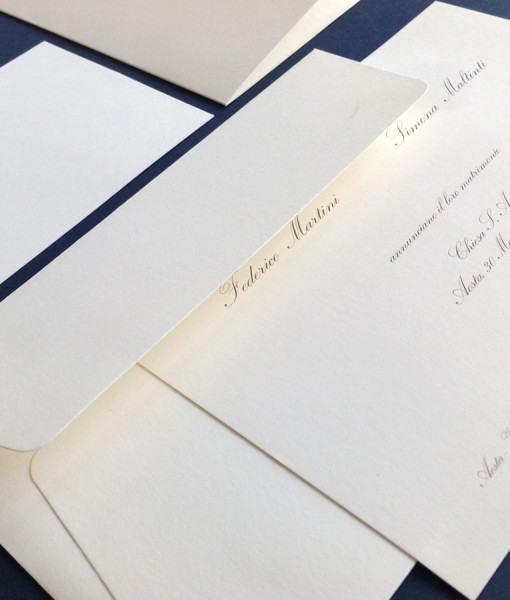 Federico Martini
Simona Maltinti
annunciano il loro matrimonio
Chiesa S. A
Aosta, 30 M
Aosta